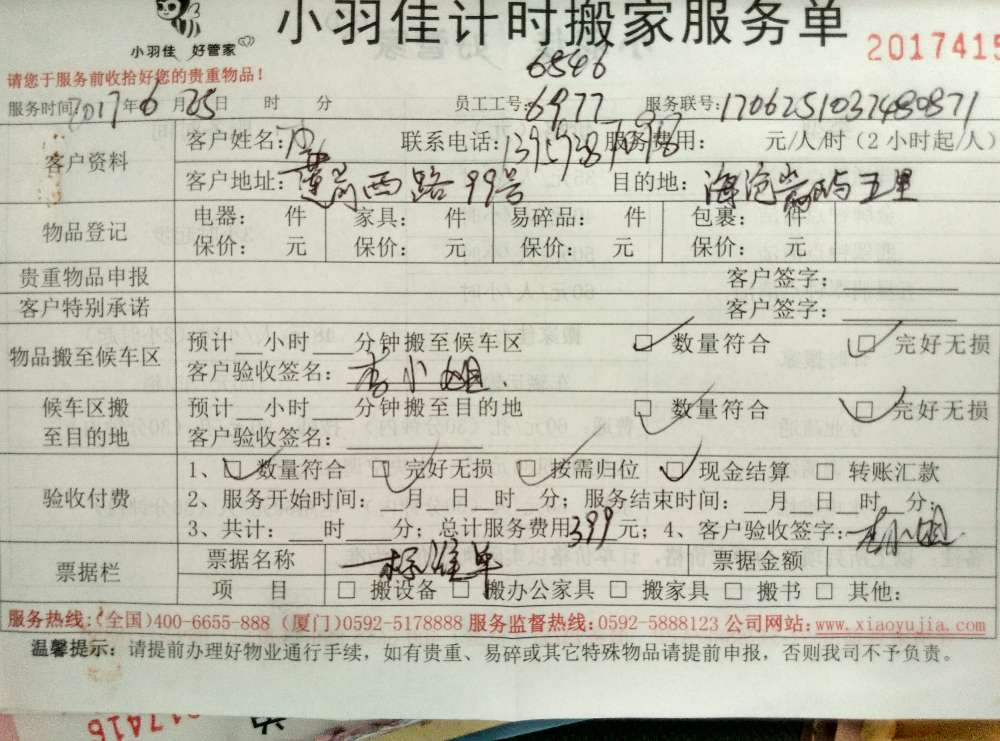 小羽佳 好管家
小羽佳计时搬家服务单
2017415
请您于服务前收拾好您的贵重物品！
6546
服务时间：2017年6月25日 时 分 员工工号：6977 服务联号：1706251037480871
客户资料
客户姓名： 联系电话： 服务费用： 元/人/时（2小时起/人）
客户地址：莲前西路99号 目的地：海沧嵩屿五里
物品登记
电器： 件 家具： 件 易碎品： 件 包裹： 件
保价： 元 保价： 元 保价： 元 保价： 元
贵重物品申报 客户签字：
客户特别承诺 客户签字：
物品搬至候车区
预计__小时___分钟搬至候车区 □ 数量符合 □ 完好无损
客户验收签名：李小姐
候车区搬
至目的地
预计__小时___分钟搬至目的地 □ 数量符合 □ 完好无损
客户验收签名：
验收付费
1、□ 数量符合 □ 完好无损 □ 按需归位 □ 现金结算 □ 转账汇款
2、服务开始时间：__月__日__时__分；服务结束时间：__月__日__时__分；
3、共计：___时___分；总计服务费用399元；4、客户验收签字：李小姐
票据栏
票据名称 标准单 票据金额
项 目 □ 搬设备 □ 搬办公家具 □ 搬家具 □ 搬书 □ 其他：
服务热线：(全国)400-6655-888 (厦门)0592-5178888 服务监督热线：0592-5888123 公司网站：www.xiaoyujia.com
温馨提示：请提前办理好物业通行手续，如有贵重、易碎或其它特殊物品请提前申报，否则我司不予负责。
017416